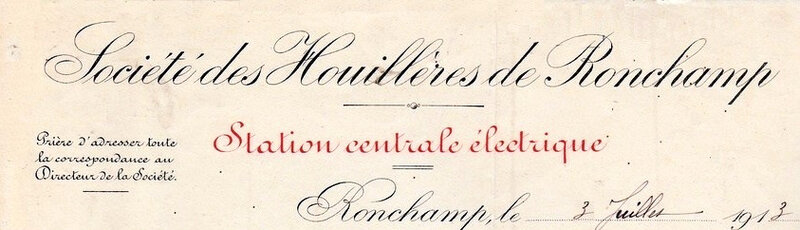 Société des Houillères de Ronchamp
Station centrale électrique
Prière d'adresser toute
la correspondance au
Directeur de la Société.
Ronchamp, le 3 Juillet 1913